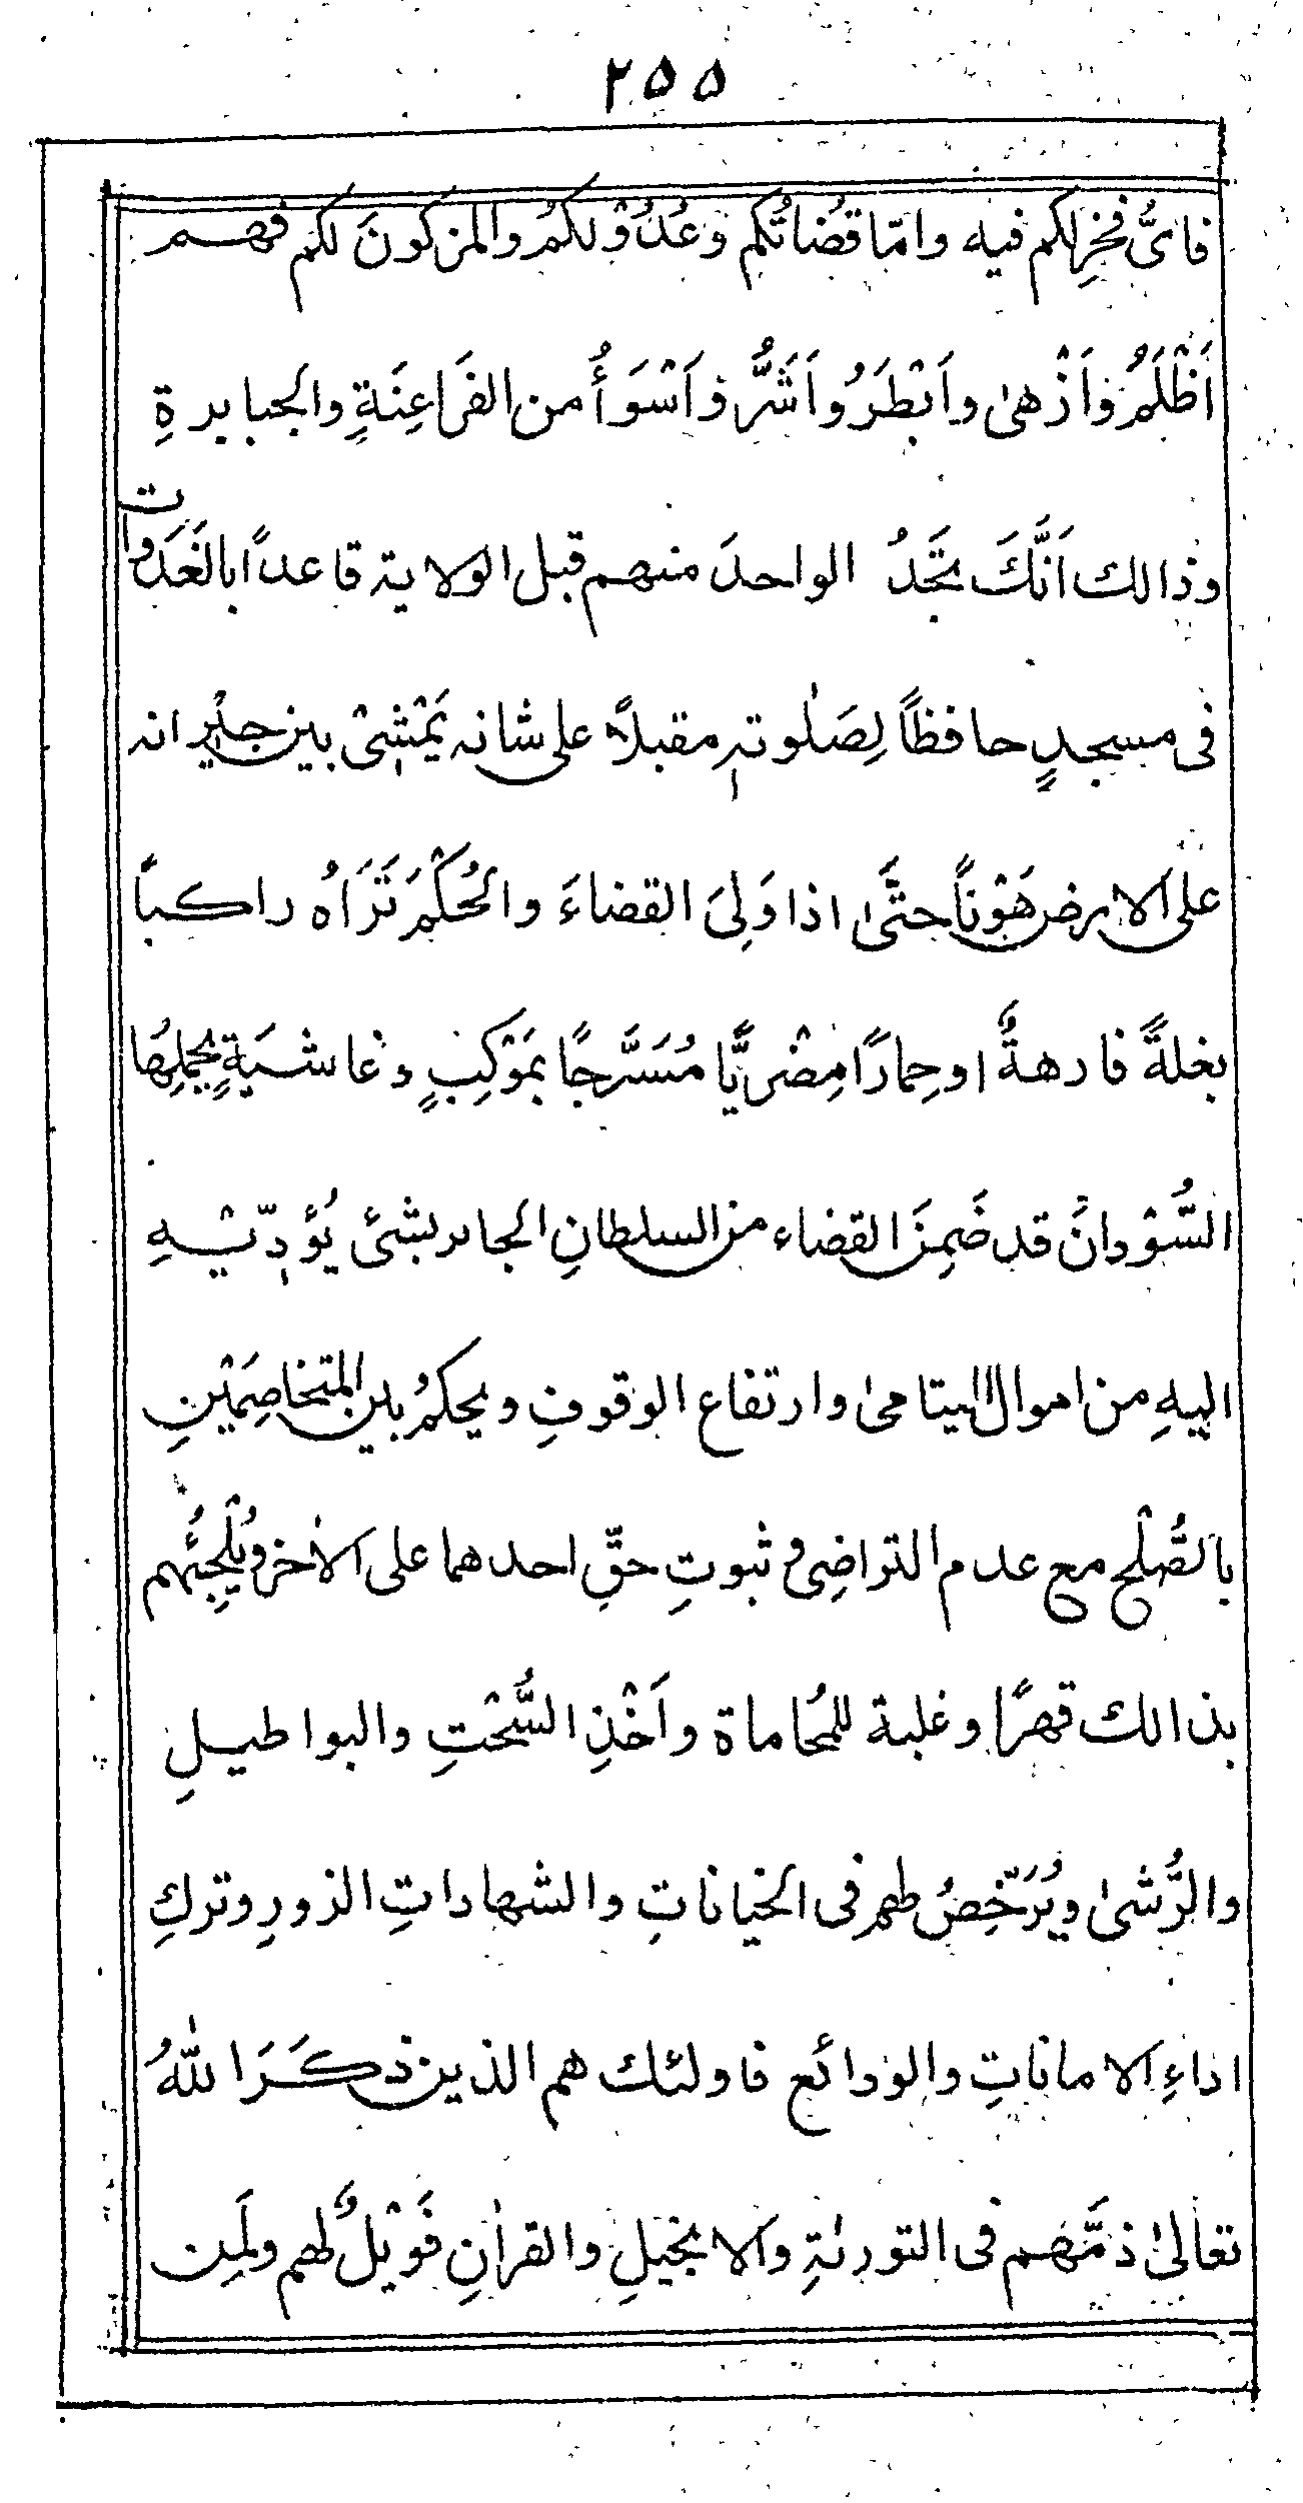 ٢٥٥
فاىُّ فخرٍ لكم فيه وامّا قُضاتُكم وعُدُوْلكمُ والمزكونَ لكم فهم
اَظْلَمُ وَاَزْهىٰ واَبْطَرُ واَشَرُّ وَاَسْوَأُ من الفَرَاعِنَةٍ والجبابرةِ
وذالك اَنَّكَ تَجَّدُ الواحدَ منهم قبل الولاية قاعداً بالغَدَوات
فى مسجدٍ حافظاً لِصَلٰوتهِ مقبلاً على شانه يَمْشِىْ بين جيْرانه
على الارض هَوْناً حتَّىٰ اذا وَلِىَ القضاءَ والحُكْمَ تَرَاهُ راكباً
بغلةً فارهةً اوحِمارًا مِصْرِيًّا مُسَرَّجًا بمَوْكِبٍ وغاشيَةٍ يحمِلُهَا
السُّوْدانَ قد ضَمِنَ القضاء من السلطانِ الجائر بشئ يُؤدِّيْهِ
اليهِ من اموال اليتامىٰ وارتفاع الوقوفِ ويحكمُ بين المتخاصِمَيْنِ
بالصُّلْحِ مع عدم التراضِى وثبوتِ حقّ احدهما على الاٰخر ويُلْجِئُهم
بذالك قهرًا وغلبة للمُحاماة واَخْذِ السُّحْتِ والبواطيلِ
والرُّشىٰ ويُرَخِّصُ لهم فى الخياناتِ والشهاداتِ الزورِ وتركِ
اداءِ الاماناتِ والودائع فاولئك هم الذين ذكَرَ اللهُ
تعالىٰ ذمَّهَم فى التورىٰةِ والانجيلِ والقراٰنِ فَوَيْلٌ لهم ولَمِن